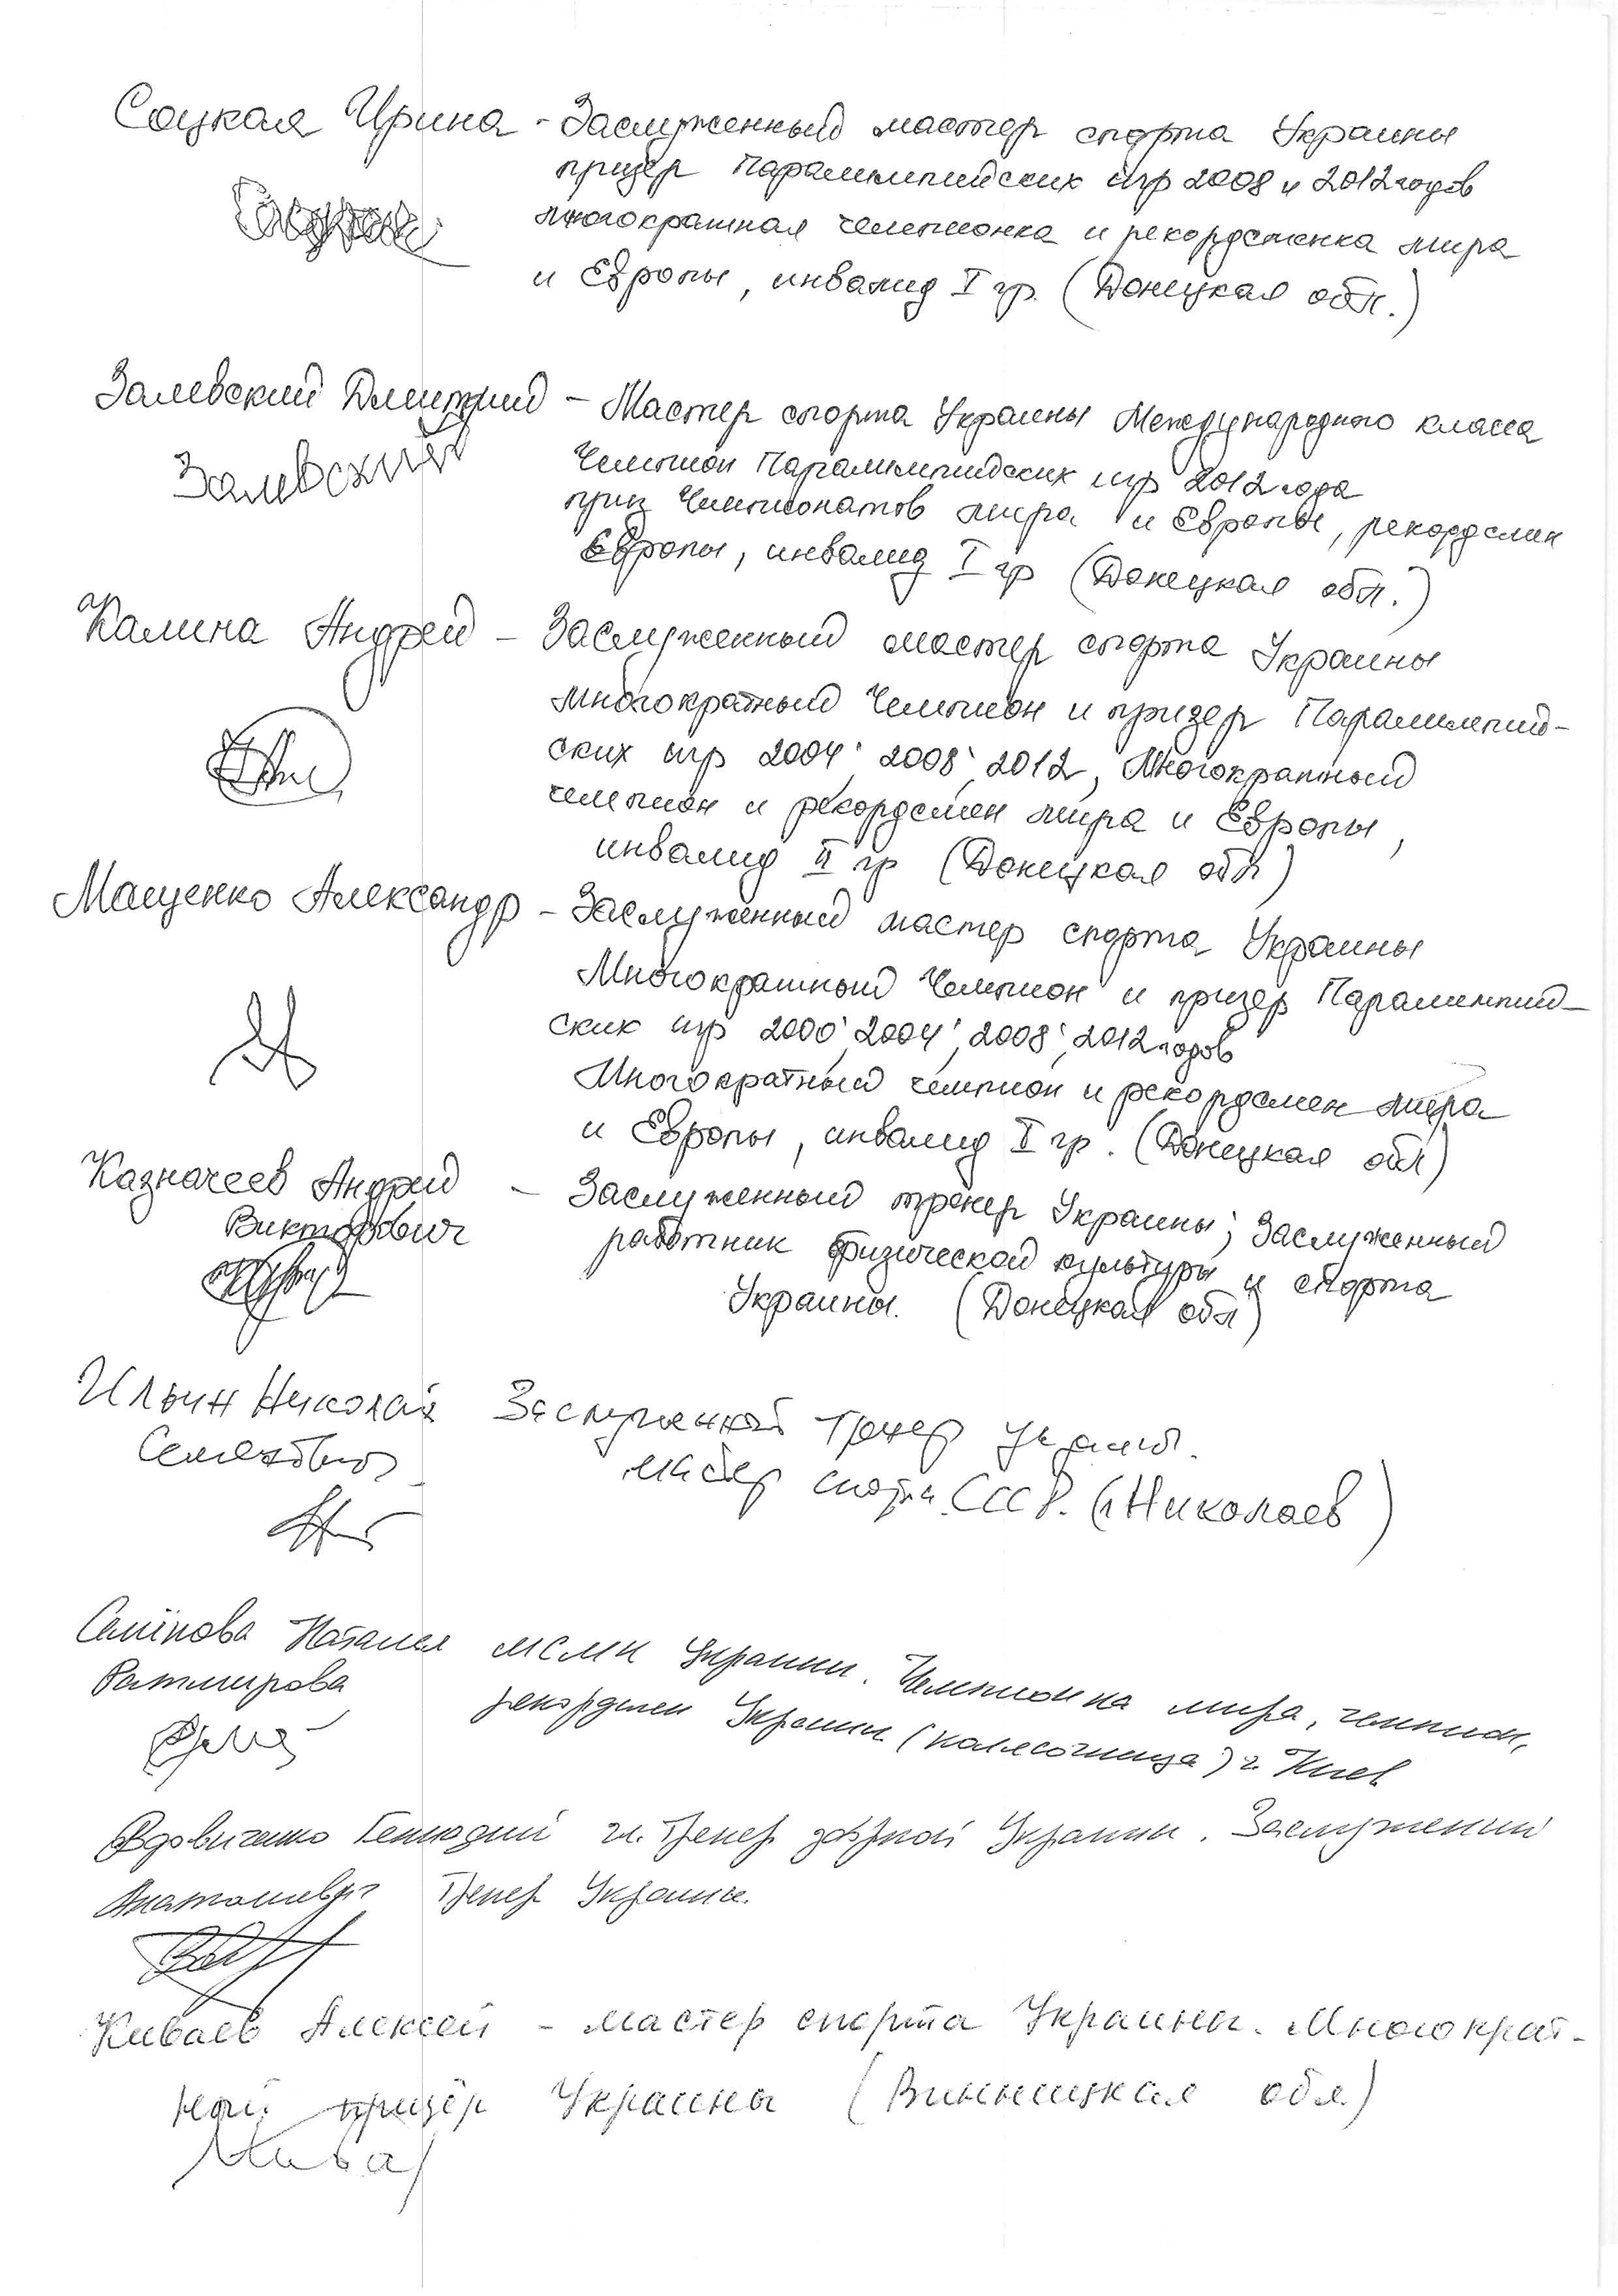 Соцкая Ирина - Заслуженный мастер спорта Украины
призёр Паралимпийских игр 2008 и 2012 годов
многократная чемпионка и рекордсменка мира
и Европы, инвалид I гр. (Донецкая обл.)
Залевский Дмитрий - Мастер спорта Украины Международного класса
Залевский
Чемпион Паралимпийских игр 2012 года
приз Чемпионатов мира и Европы, рекордсмен
Европы, инвалид I гр (Донецкая обл.)
Калина Андрей - Заслуженный мастер спорта Украины
многократный Чемпион и призер Паралимпий-
ских игр 2004, 2008, 2012, Многократный
чемпион и рекордсмен мира и Европы,
инвалид II гр (Донецкая обл)
Мащенко Александр - Заслуженный мастер спорта Украины
Многократный Чемпион и призёр Паралимпий-
ских игр 2000, 2004, 2008, 2012 годов
Многократный чемпион и рекордсмен мира
и Европы, инвалид I гр. (Донецкая обл)
Казначеев Андрей - Заслуженный тренер Украины; Заслуженный
Викторович
работник физической культуры и спорта
Украины. (Донецкая обл)
Ильин Николай Заслуженный тренер Украины.
Семенович
мастер спорта СССР. (г. Николаев)
Наталия МСМК Украины. Чемпионка мира, чемпион,
рекордсмен Украины (колясочница) г. Киев
Вдовиченко Геннадий гл. тренер сборной Украины. Заслуженный
Анатольевич Тренер Украины.
Киваев Алексей - мастер спорта Украины. Многократ-
ный призёр Украины (Винницкая обл)